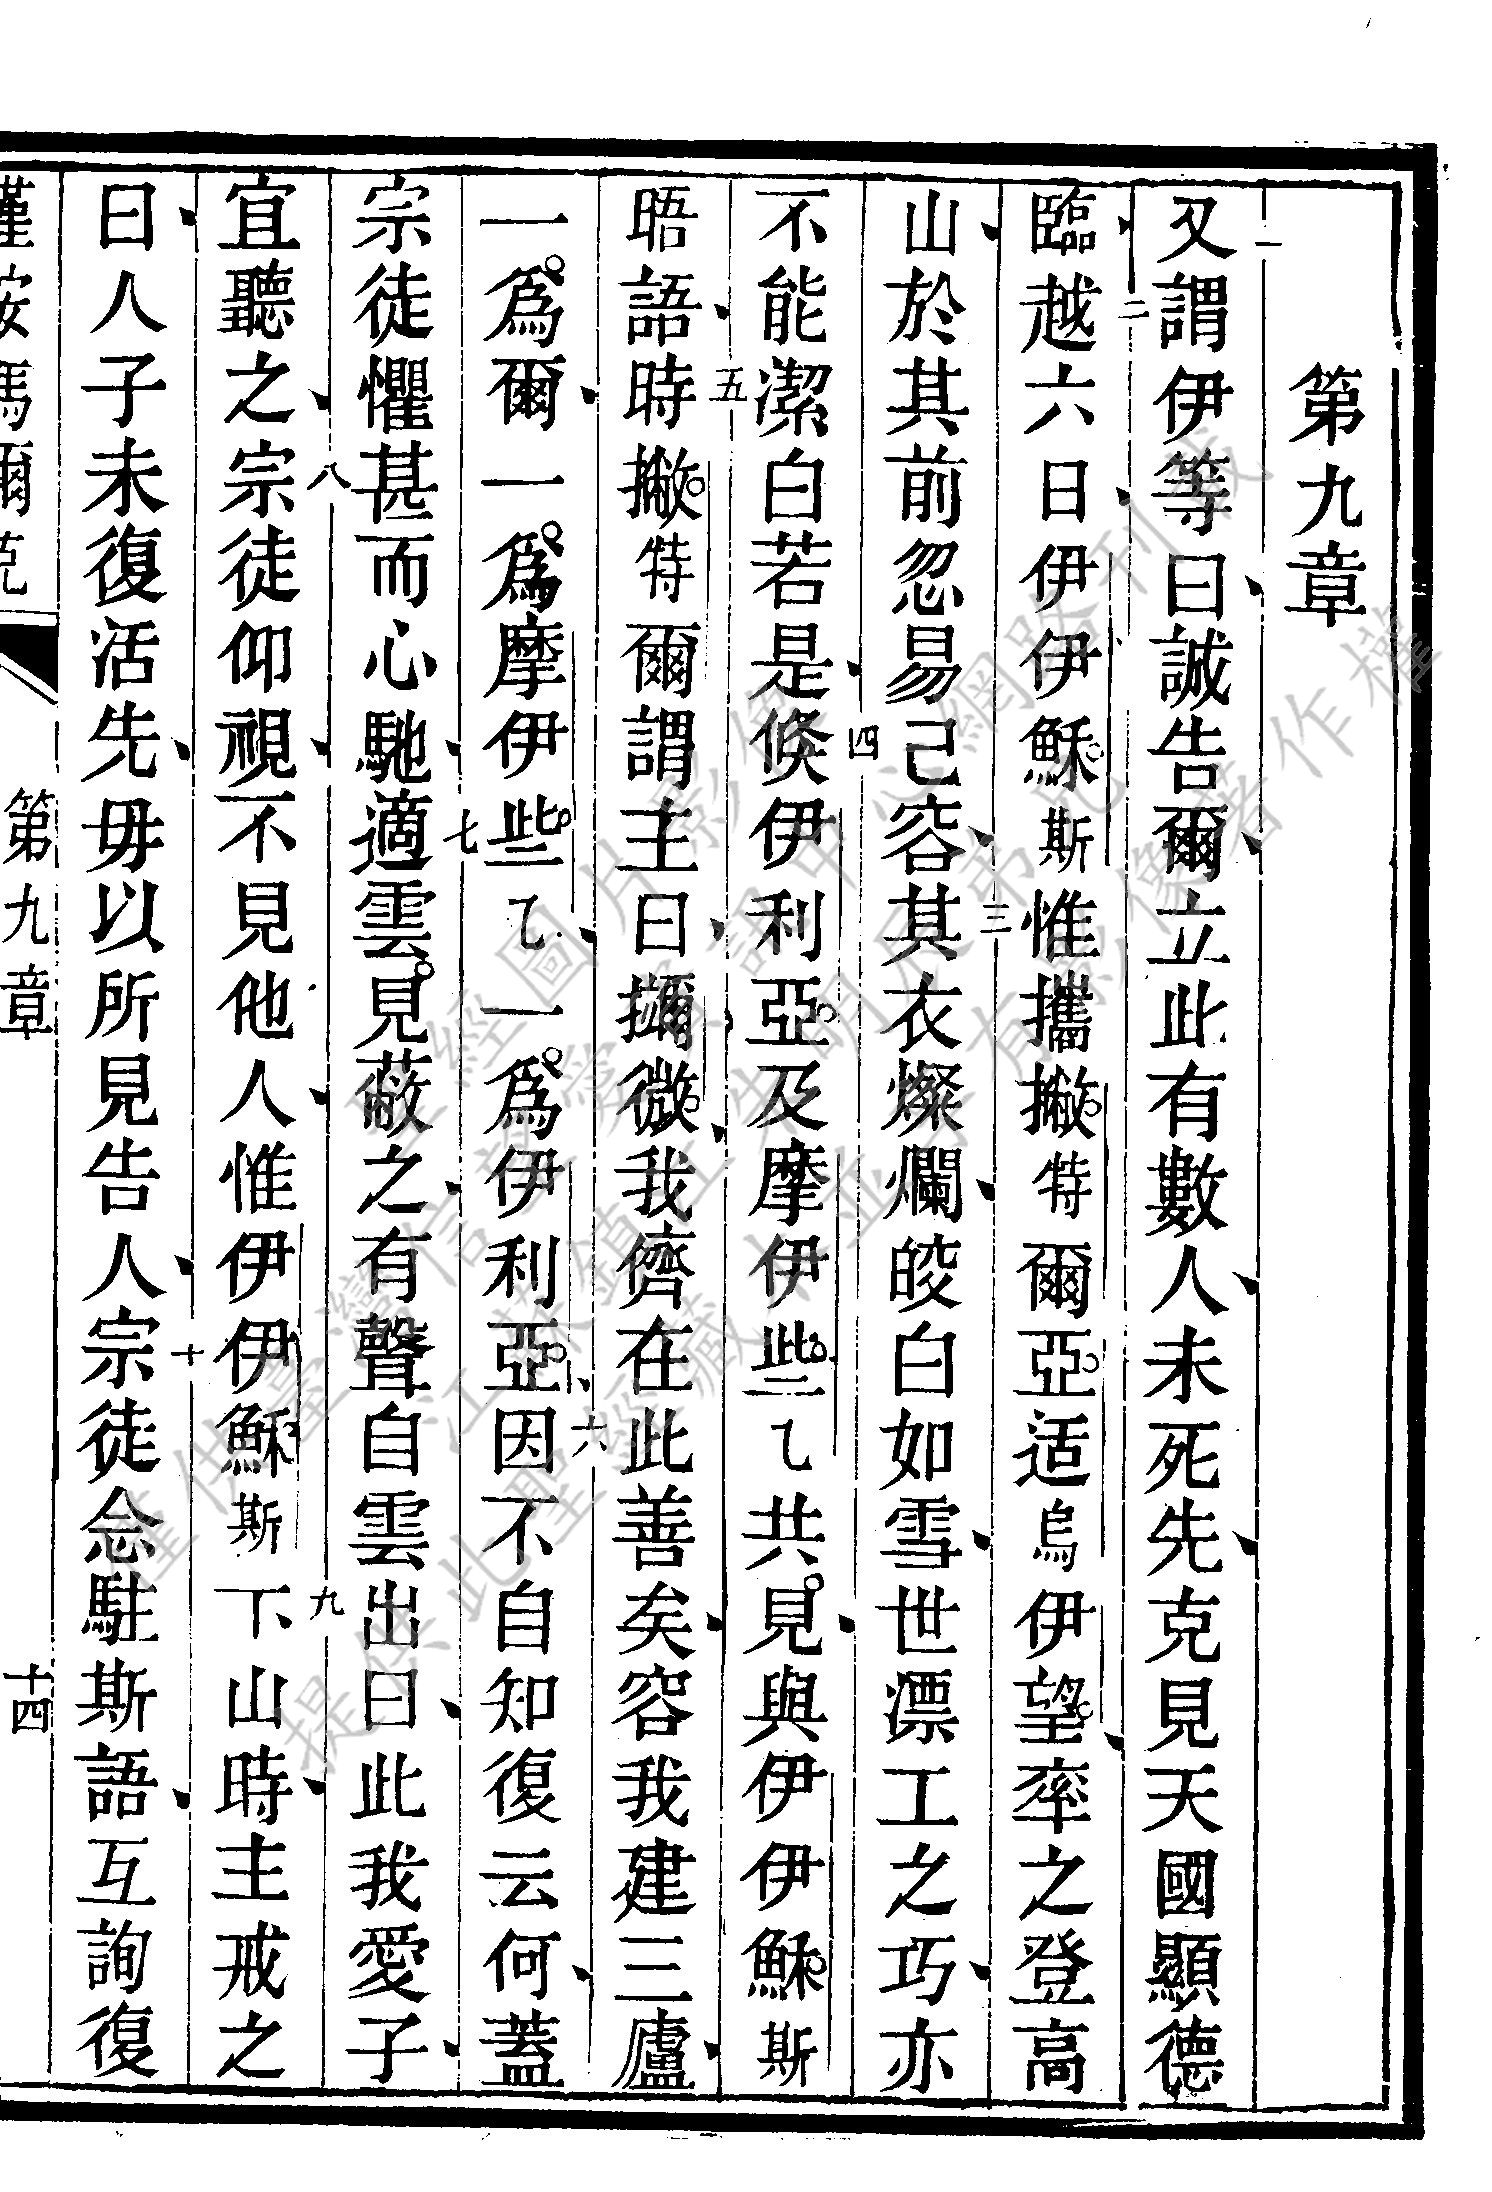 第九章
一又謂伊等曰誠告爾立此有數人未死先克見天國顯德
臨二越六日伊伊穌斯惟攜撇特爾亞适烏伊望率之登高
山於其前忽易己容三其衣燦爛皎白如雪世漂工之巧亦
不能潔白若是四倐伊利亞及摩伊些乙共見與伊伊穌斯
晤語時五撇特爾謂主曰擟微我儕在此善矣容我建三廬
一為爾一為摩伊些乙一為伊利亞六因不自知復云何蓋
宗徒懼甚而心馳七適雲見蔽之有聲自雲出曰此我愛子
宜聽之八宗徒仰視不見他人惟伊伊穌斯九下山時主戒之
曰人子未復活先毋以所見告人十宗徒念駐斯語互詢復
第九章
十四
僅供臺灣信望愛資訊中心網路刊載